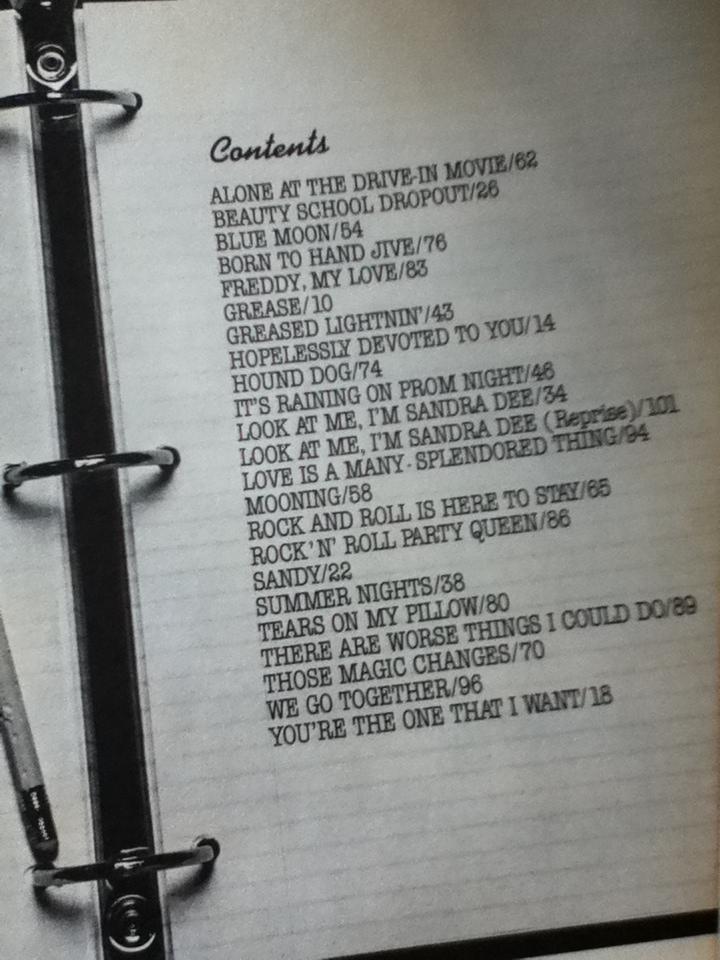 Contents
ALONE AT THE DRIVE-IN MOVIE/62
BEAUTY SCHOOL DROPOUT/26
BLUE MOON/54
BORN TO HAND JIVE/76
FREDDY, MY LOVE/83
GREASE/10
GREASED LIGHTNIN'/43
HOPELESSLY DEVOTED TO YOU/14
HOUND DOG/74
IT'S RAINING ON PROM NIGHT/46
LOOK AT ME, I'M SANDRA DEE/34
LOOK AT ME, I'M SANDRA DEE (Reprise)/101
LOVE IS A MANY-SPLENDORED THING/94
MOONING/58
ROCK AND ROLL IS HERE TO STAY/65
ROCK'N' ROLL PARTY QUEEN/86
SANDY/22
SUMMER NIGHTS/38
TEARS ON MY PILLOW/80
THERE ARE WORSE THINGS I COULD DO/89
THOSE MAGIC CHANGES/70
WE GO TOGETHER/96
YOU'RE THE ONE THAT I WANT/18